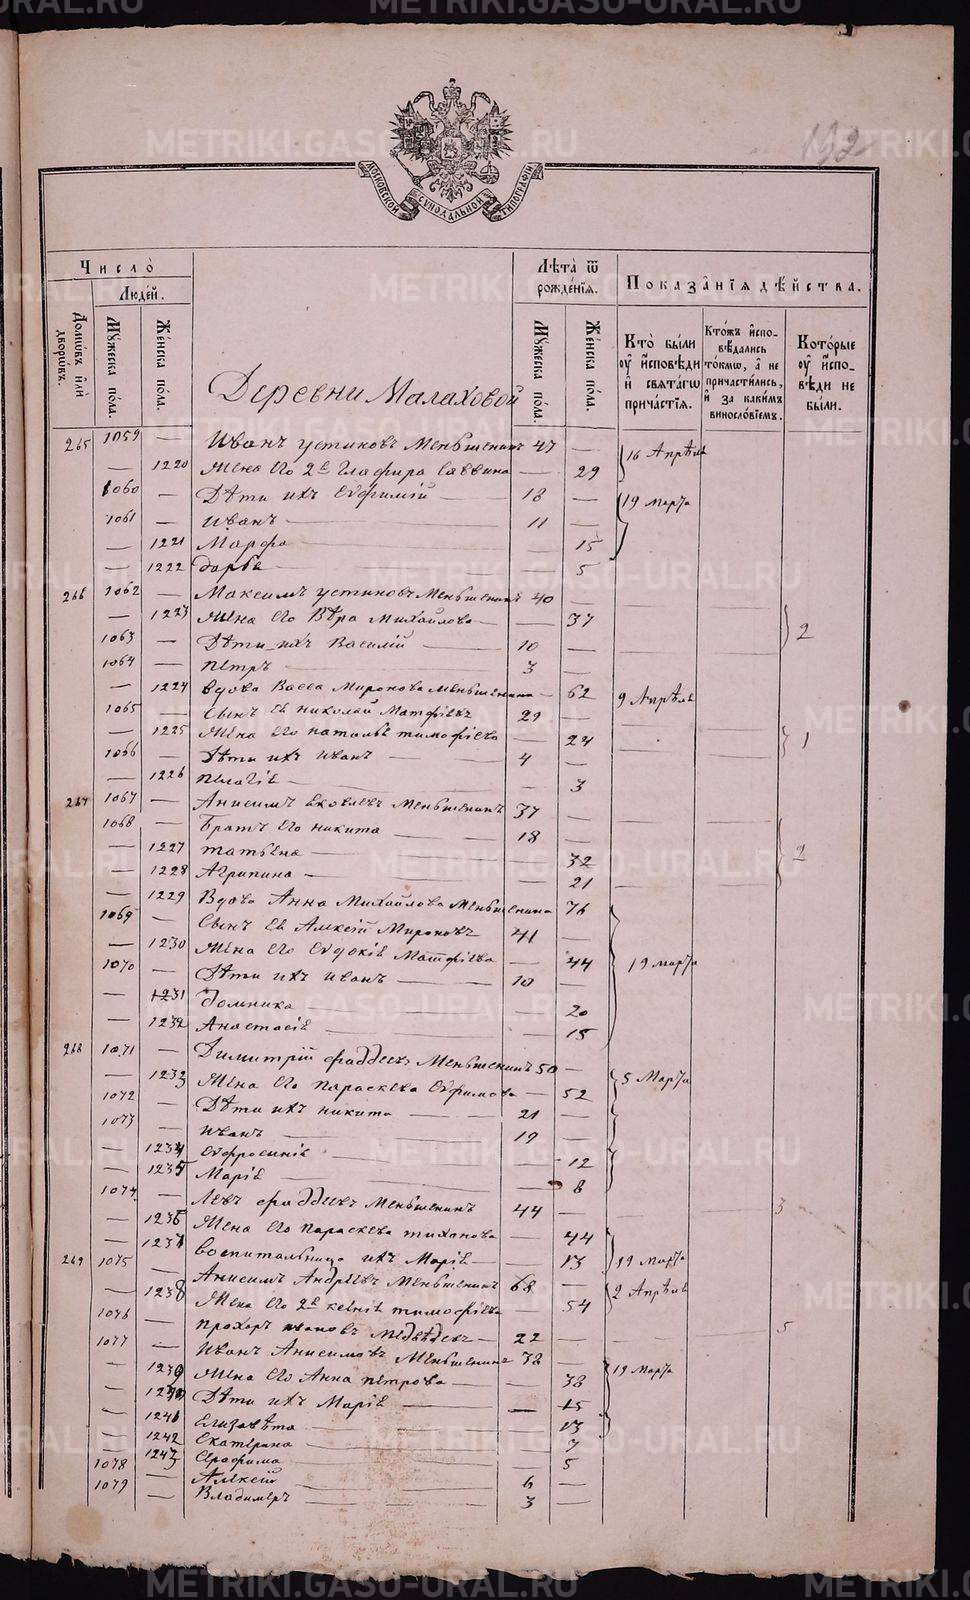 192
МОСКОВСКОЙ СѴНОДАЛЬНОЙ ТИПОГРАФІИ
Число̀
Людей.
Домѡвъ и҆лѝ дворѡвъ.
Мꙋжеска пола.
Женска пола.
Лѣта̀ ѿ рожденїѧ.
Мꙋжеска пола.
Женска пола.
Показанїѧ дѣйства.
Кто̀ были ᲂу҆ и҆сповѣди и҆ свѧтагѡ причастїѧ.
Ктожъ и҆сповѣдались токмѡ, а҆ не причастились, и҆ за какимъ винословїемъ.
Которые ᲂу҆ и҆сповѣди не были.
Деревни Малаховой
265 1059 — Иванъ Устиновъ Меньшенинъ 47 — 16 Апрѣля
— 1220 Жена его 2я Глафира Саввина — 29
1060 — Дѣти ихъ Евфимій — 18 — 19 марта
1061 — Иванъ — 11 —
— 1221 Марфа — 15
— 1222 Дарья — 5
266 1062 — Максимъ Устиновъ Меньшенинъ 40 —
— 1223 Жена его Вѣра Михайлова — 37 2
1063 — Дѣти ихъ Василій — 10 —
1064 — Петръ — 3 —
— 1224 Вдова Васса Миронова Меньшенина — 62 9 Апрѣля
1065 — Сынъ ея Николай Матфіевъ 29 —
— 1225 Жена его Наталья Тимофіева — 24 1
1066 — Дѣти ихъ Иванъ — 4 —
— 1226 Пелагія — 3
267 1067 — Анисимъ Яковлевъ Меньшенинъ 37 —
1068 — Братъ его Никита — 18 —
— 1227 Татьяна — 32 2
— 1228 Агрипина — 21
— 1229 Вдова Анна Михайлова Меньшенина 76
1069 — Сынъ ея Алексій Мироновъ 41 —
— 1230 Жена его Евдокія Матфіева — 44 19 марта
1070 — Дѣти ихъ Иванъ — 10 —
— 1231 Домника — 20
— 1232 Анастасія — 15
268 1071 — Димитрій Фаддеевъ Меньшенинъ 50 —
— 1233 Жена его Параскева Евфимова — 52 5 Марта
1072 — Дѣти ихъ Никита — 21 —
1073 — Иванъ — 19 —
— 1234 Евфросинія — 12
— 1235 Марія — 8
1074 — Левъ Фаддеевъ Меньшенинъ 44 — 3
— 1236 Жена его Параскева Тиханова — 44
— 1237 Воспитальница ихъ Марія — 13 19 марта
269 1075 — Анисимъ Андреевъ Меньшенинъ 68 — 2 Апрѣля
— 1238 Жена его 2я Ксенія Тимофіева — 54
1076 — Прохоръ Ивановъ Медвѣдевъ — 22 — 5
1077 — Иванъ Анисимовъ Меньшенинъ 38 — 19 марта
— 1239 Жена его Анна Петрова — 38
— 1240 Дѣти ихъ Марія — 15
— 1241 Елизавѣта — 13
— 1242 Екатерина — 7
— 1243 Серафима — 5
1078 — Алексій — 6 —
1079 — Владимеръ — 3 —
METRIKI.GASO-URAL.RU